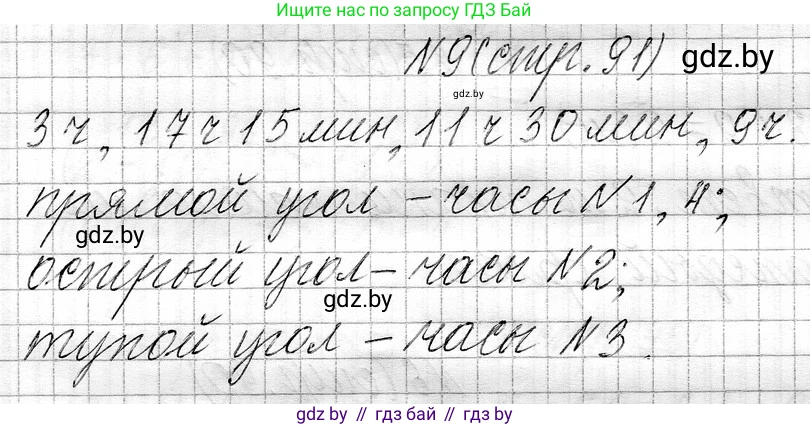 Ищите нас по запросу ГДЗ Бай
N9(стр. 91) gdz.by
gdz.by
3 ч, 17 ч 15 мин, 11 ч 30 мин, 9 ч.
прямой угол – часы N1, 4;
gdz.by
острый угол – часы N2;
gdz.by
тупой угол – часы N3.
gdz.by // гдз бай // gdz.by